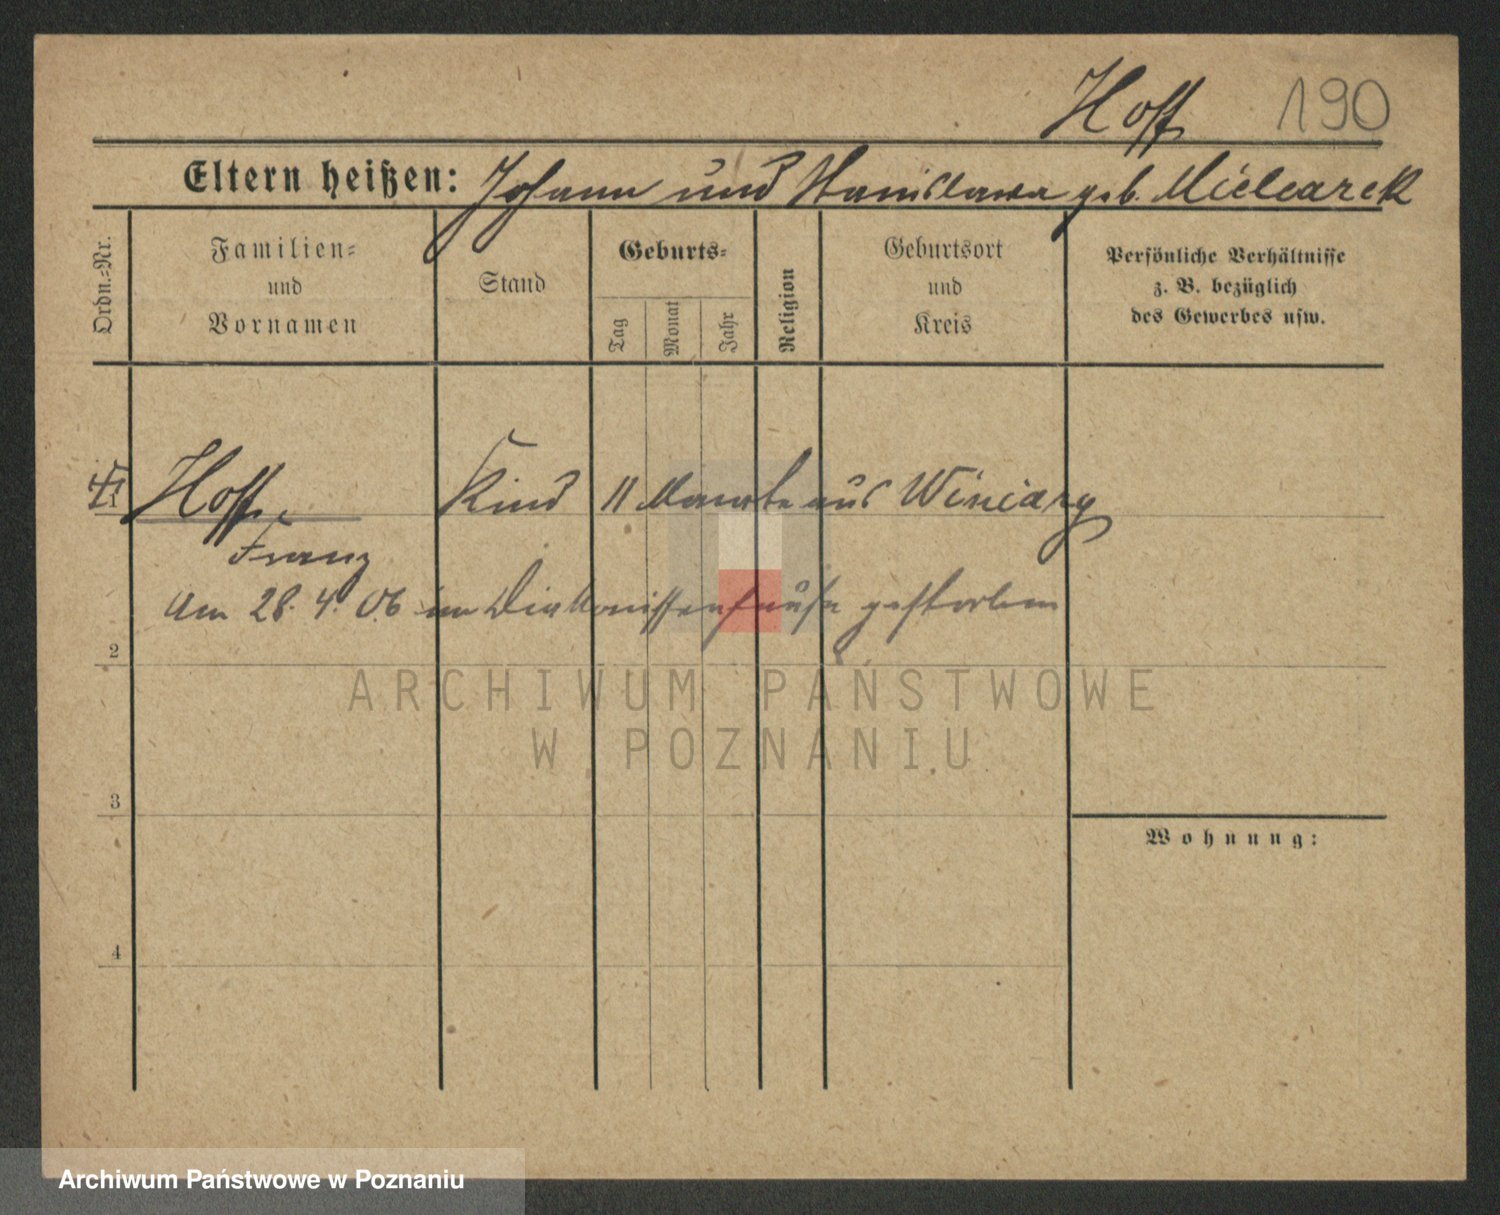 Hoff 190
Eltern heißen: Johann und Stanislawa geb. Mielcarek
Ordn.=Nr.
Familien=
und
Vornamen
Stand
Geburts=
Tag
Monat
Jahr
Religion
Geburtsort
und
Kreis
Persönliche Verhältnisse
z. B. bezüglich
des Gewerbes usw.
Hoff, Kind 11 Monate aus Winiary
Franz
Am 28. 4. 06 im Diakonissenhause gestorben
2
ARCHIWUM PAŃSTWOWE
W POZNANIU
3
Wohnung:
4
Archiwum Państwowe w Poznaniu